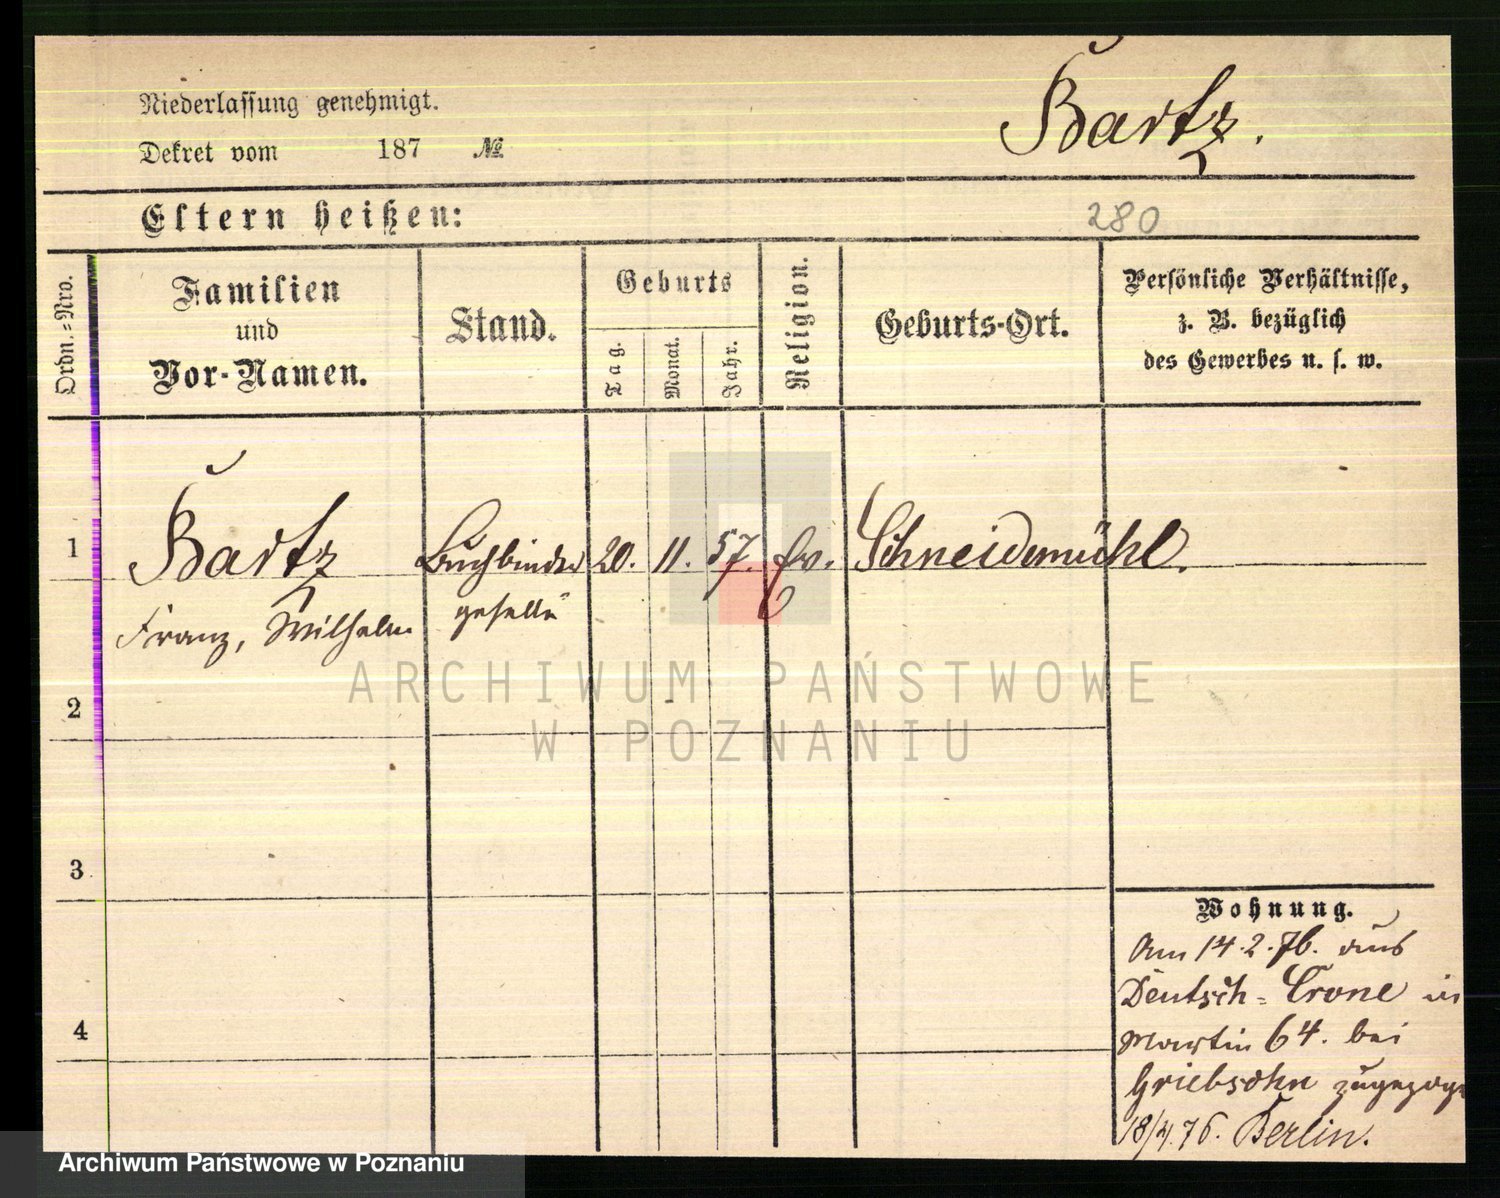 Bartz.
Niederlassung genehmigt.
Dekret vom 187 №
Eltern heißen:
280
Ordn.=Nro.
Familien
und
Vor-Namen.
Stand.
Geburts
Tag.
Monat.
Jahr.
Religion.
Geburts-Ort.
Persönliche Verhältnisse,
z. B. bezüglich
des Gewerbes u. s. w.
1 Bartz Buchbinder 20. 11. 57. ev. Schneidemühl.
Franz, Wilhelm geselle
ARCHIWUM PAŃSTWOWE
W POZNANIU
2
3
4
Wohnung.
Am 14.2.76. aus
Deutsch=Crone in
Martin 64. bei
Griebsohn zugezoge
18/4.76. Berlin.
Archiwum Państwowe w Poznaniu